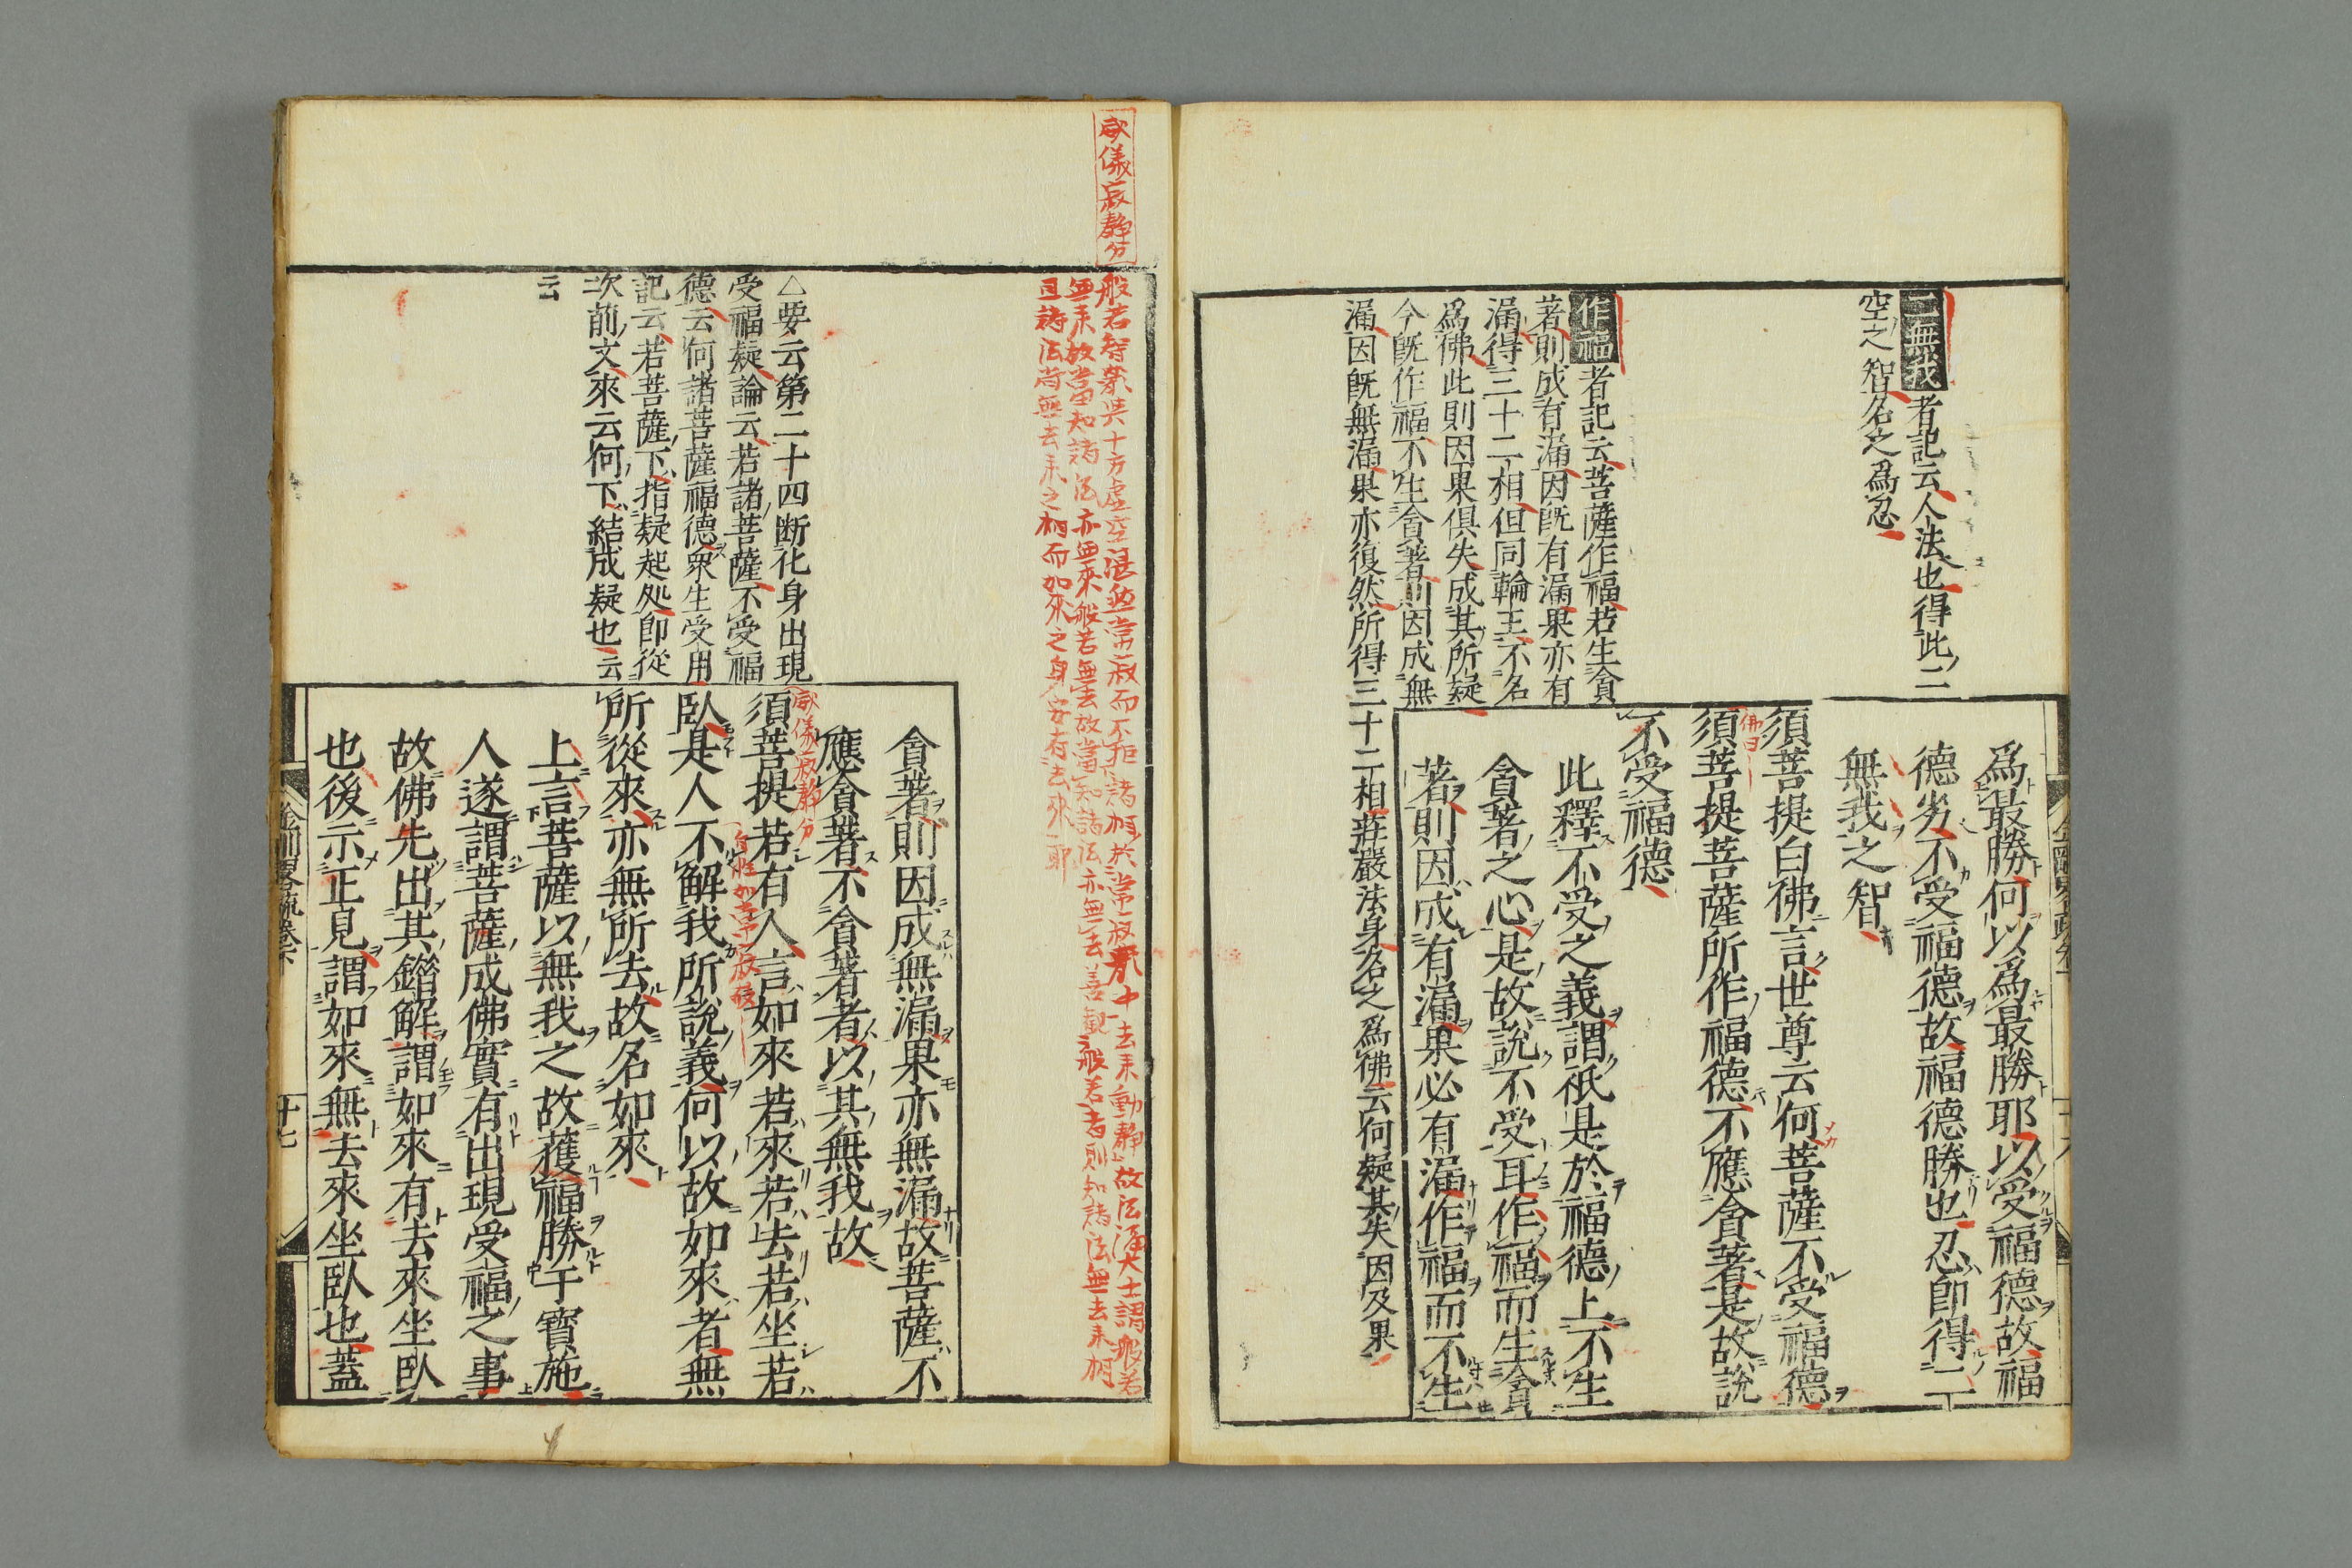 二無我者記云人法也得此二
空之智名之爲忍
作福者記云菩薩作福若生貪
著則成有漏因既有漏果亦有
漏得三十二相但同輪王不名
爲佛此則因果俱失成其所疑
今既作福不生貪著則因成無
漏因既無漏果亦復然所得三十二相莊嚴法身名之爲佛云何疑其失因及果
爲最勝何以爲最勝耶以受福德故福
德劣不受福德故福德勝也忍即得二
無我之智
須菩提白佛言世尊云何菩薩不受福德
佛曰
須菩提菩薩所作福德不應貪著是故說
不受福德
此釋不受之義謂祇是於福德上不生
貪著之心是故說不受耳作福而生貪
著則因成有漏果必有漏作福而不生
威儀寂靜分
般若智崇與十方虛空湛然常寂而不拒諸相於常寂中去来動靜故法涌大士謂般若
無来故當知諸法亦無來般若無去故當知諸法亦無去善觀般若者則知諸法無去来相
且諸法尚無去来之相而如來之身安有去來耶
△要云第二十四断化身出現
受福疑論云若諸菩薩不受福
德云何諸菩薩福德衆生受用
記云若菩薩下指疑起処即從
次前文來云何下結成疑也云
云
貪著則因成無漏果亦無漏故菩薩不
應貪著不貪著者以其無我故
威儀寂靜分
須菩提若有人言如來若來若去若坐若
臥是人不解我所說義何以故如來者無
所從來亦無所去故名如來
上言菩薩以無我之故獲福勝于寶施
人遂謂菩薩成佛實有出現受福之事
故佛先出其錯解謂如來有去來坐臥
也後示正見謂如來無去來坐臥也蓋
金剛略疏卷下
十七